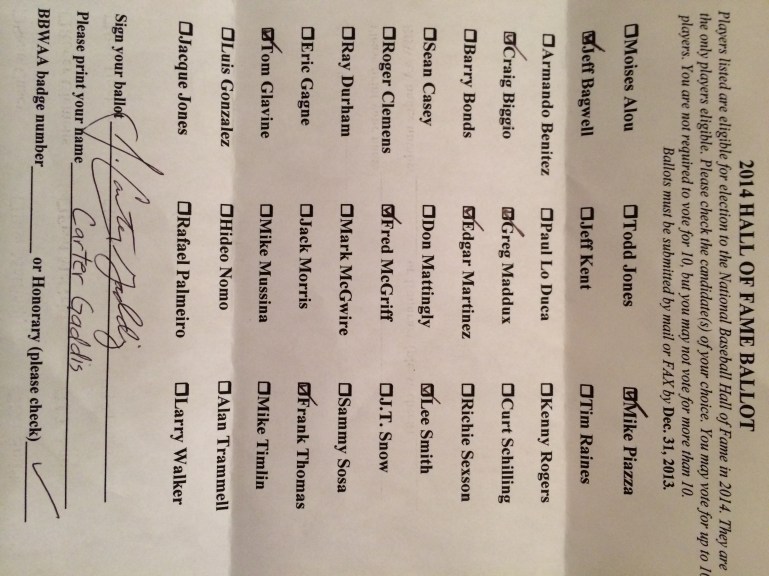 2014 HALL OF FAME BALLOT
Players listed are eligible for election to the National Baseball Hall of Fame in 2014. They are
the only players eligible. Please check the candidate(s) of your choice. You may vote for up to 10
players. You are not required to vote for 10, but you may not vote for more than 10.
Ballots must be submitted by mail or FAX by Dec. 31, 2013.
☐Moises Alou ☐Todd Jones ☑Mike Piazza
☑Jeff Bagwell ☐Jeff Kent ☐Tim Raines
☐Armando Benitez ☐Paul Lo Duca ☐Kenny Rogers
☑Craig Biggio ☑Greg Maddux ☐Curt Schilling
☐Barry Bonds ☑Edgar Martinez ☐Richie Sexson
☐Sean Casey ☐Don Mattingly ☑Lee Smith
☐Roger Clemens ☑Fred McGriff ☐J.T. Snow
☐Ray Durham ☐Mark McGwire ☐Sammy Sosa
☐Eric Gagne ☐Jack Morris ☑Frank Thomas
☑Tom Glavine ☐Mike Mussina ☐Mike Timlin
☐Luis Gonzalez ☐Hideo Nomo ☐Alan Trammell
☐Jacque Jones ☐Rafael Palmeiro ☐Larry Walker
Sign your ballot J. Carter Gaddis
Please print your name Carter Gaddis
BBWAA badge number________ or Honorary (please check)___✓___